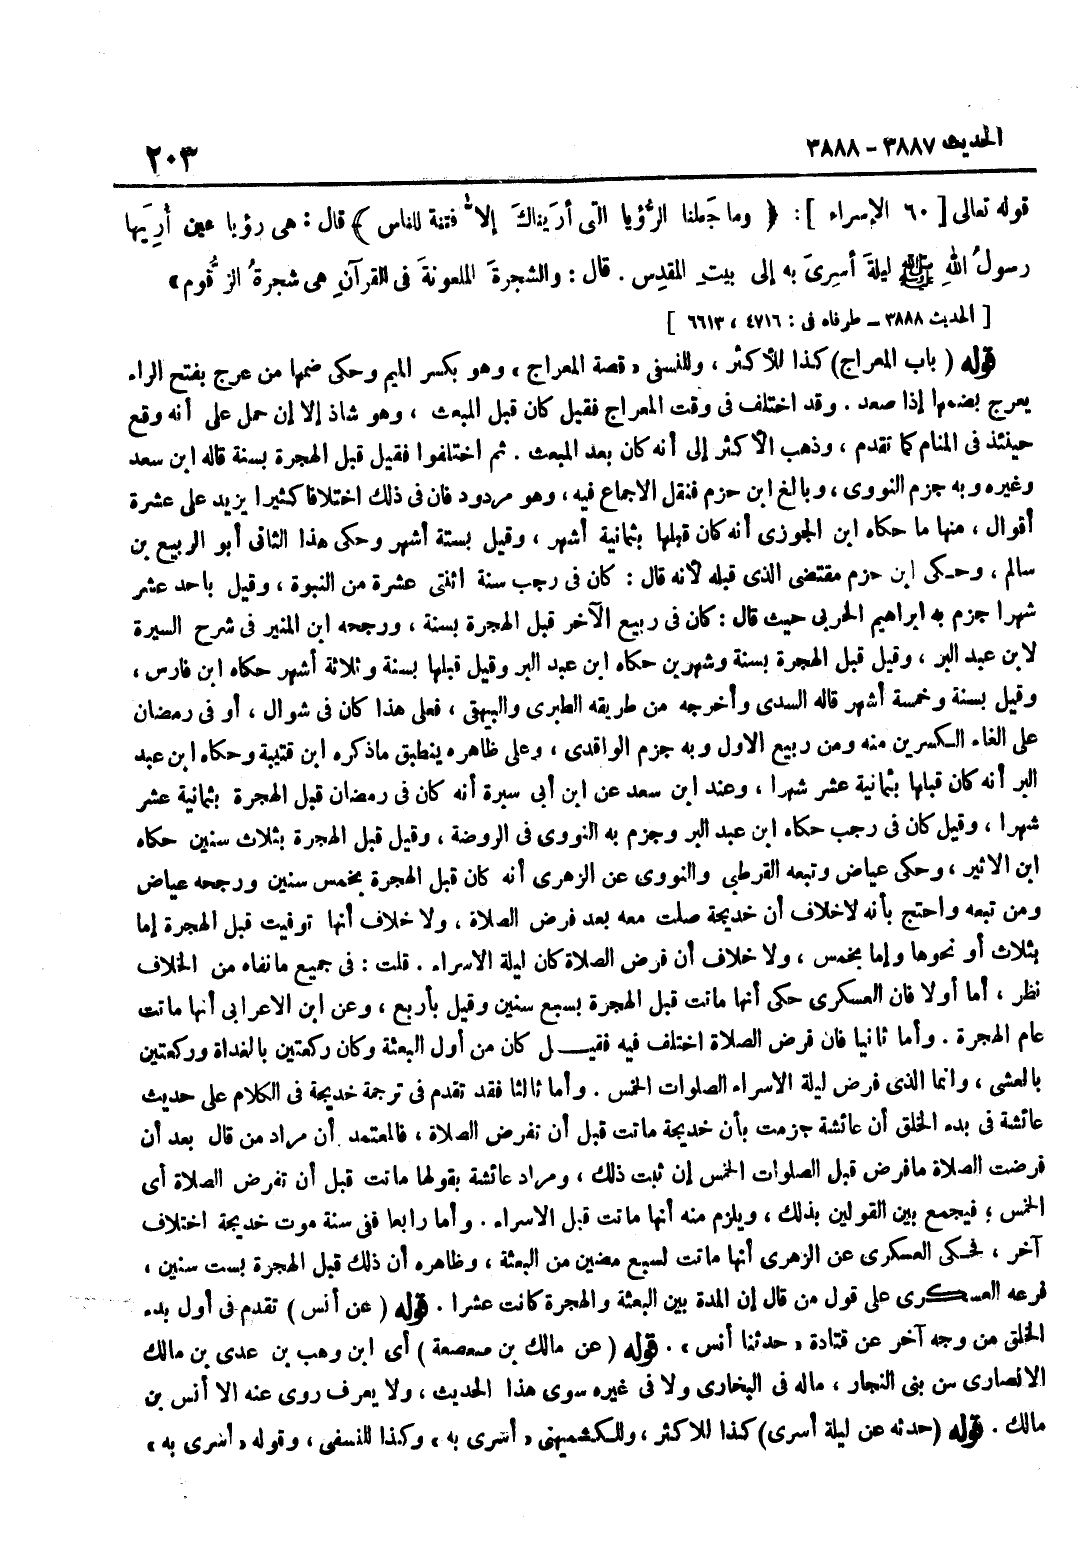 الحديث ٣٨٨٧ – ٣٨٨٨
٢٠٣
قوله تعالى [ ٦٠ الإسراء ] : ﴿ وما جَعلنا الرُّؤيا التى أرَيناكَ إلاّ فتنة للناس ﴾ قال : هى رؤيا عين أُرِيَها
رسولُ اللهِ ﷺ ليلةَ أُسرِىَ به إلى بيتِ المقدِس . قال : والشجرةَ الملعونةَ فى القرآنِ هى شجرةُ الزَّقُّوم »
[ الحديث ٣٨٨٨ – طرفاه فى : ٤٧١٦ ، ٦٦١٣ ]
قوله ( باب المعراج ) كذا للأكثر ، وللنسفى « قصة المعراج » وهو بكسر الميم وحكى ضمها من عرج بفتح الراء
يعرج بضمها إذا صعد . وقد اختلف فى وقت المعراج فقيل كان قبل المبعث ، وهو شاذ إلا إن حمل على أنه وقع
حينئذ فى المنام كما تقدم ، وذهب الأكثر إلى أنه كان بعد المبعث . ثم اختلفوا فقيل قبل الهجرة بسنة قاله ابن سعد
وغيره وبه جزم النووى ، وبالغ ابن حزم فنقل الاجماع فيه ، وهو مردود فان فى ذلك اختلافا كثيرا يزيد على عشرة
أقوال ، منها ما حكاه ابن الجوزى أنه كان قبلها بثمانية أشهر ، وقيل بستة أشهر وحكى هذا الثانى أبو الربيع بن
سالم ، وحكى ابن حزم مقتضى الذى قبله لأنه قال : كان فى رجب سنة اثنتى عشرة من النبوة ، وقيل باحد عشر
شهرا جزم به ابراهيم الحربى حيث قال : كان فى ربيع الآخر قبل الهجرة بسنة ، ورجحه ابن المنير فى شرح السيرة
لابن عبد البر ، وقيل قبل الهجرة بسنة وشهرين حكاه ابن عبد البر وقيل قبلها بسنة وثلاثة أشهر حكاه ابن فارس ،
وقيل بسنة وخمسة أشهر قاله السدى وأخرجه من طريقه الطبرى والبيهقى ، فعلى هذا كان فى شوال ، أو فى رمضان
على الغاء الكسرين منه ومن ربيع الاول وبه جزم الواقدى ، وعلى ظاهره ينطبق ماذكره ابن قتيبة وحكاه ابن عبد
البر أنه كان قبلها بثمانية عشر شهرا ، وعند ابن سعد عن ابن أبى سبرة أنه كان فى رمضان قبل الهجرة بثمانية عشر
شهرا ، وقيل كان فى رجب حكاه ابن عبد البر وجزم به النووى فى الروضة ، وقيل قبل الهجرة بثلاث سنين حكاه
ابن الاثير ، وحكى عياض وتبعه القرطبى والنووى عن الزهرى أنه كان قبل الهجرة بخمس سنين ورجحه عياض
ومن تبعه واحتج بأنه لاخلاف أن خديجة صلت معه بعد فرض الصلاة ، ولا خلاف أنها توفيت قبل الهجرة إما
بثلاث أو نحوها وإما بخمس ، ولا خلاف أن فرض الصلاة كان ليلة الاسراء . قلت : فى جميع مانفاه من الخلاف
نظر ، أما أولا فان العسكرى حكى أنها ماتت قبل الهجرة بسبع سنين وقيل بأربع ، وعن ابن الاعرابى أنها ماتت
عام الهجرة . وأما ثانيا فان فرض الصلاة اختلف فيه فقيـــل كان من أول البعثة وكان ركعتين بالغداة وركعتين
بالعشى ، وانما الذى فرض ليلة الاسراء الصلوات الخمس . وأما ثالثا فقد تقدم فى ترجمة خديجة فى الكلام على حديث
عائشة فى بدء الخلق أن عائشة جزمت بأن خديجة ماتت قبل أن تفرض الصلاة ، فالمعتمد أن مراد من قال بعد أن
فرضت الصلاة مافرض قبل الصلوات الخمس إن ثبت ذلك ، ومراد عائشة بقولها ماتت قبل أن تفرض الصلاة أى
الخمس ؛ فيجمع بين القولين بذلك ، ويلزم منه أنها ماتت قبل الاسراء . وأما رابعا ففى سنة موت خديجة اختلاف
آخر ، فحكى العسكرى عن الزهرى أنها ماتت لسبع مضين من البعثة ، وظاهره أن ذلك قبل الهجرة بست سنين ،
فرعه العسكرى على قول من قال إن المدة بين البعثة والهجرة كانت عشرا . قوله ( عن أنس ) تقدم فى أول بدء
الخلق من وجه آخر عن قتادة « حدثنا أنس » . قوله ( عن مالك بن صعصعة ) أى ابن وهب بن عدى بن مالك
الانصارى من بنى النجار ، ماله فى البخارى ولا فى غيره سوى هذا الحديث ، ولا يعرف روى عنه الا أنس بن
مالك . قوله ( حدثه عن ليلة أسرى ) كذا للاكثر ، وللكشميهنى « أسرى به » وكذا للنسفى ، وقوله « أسرى به »